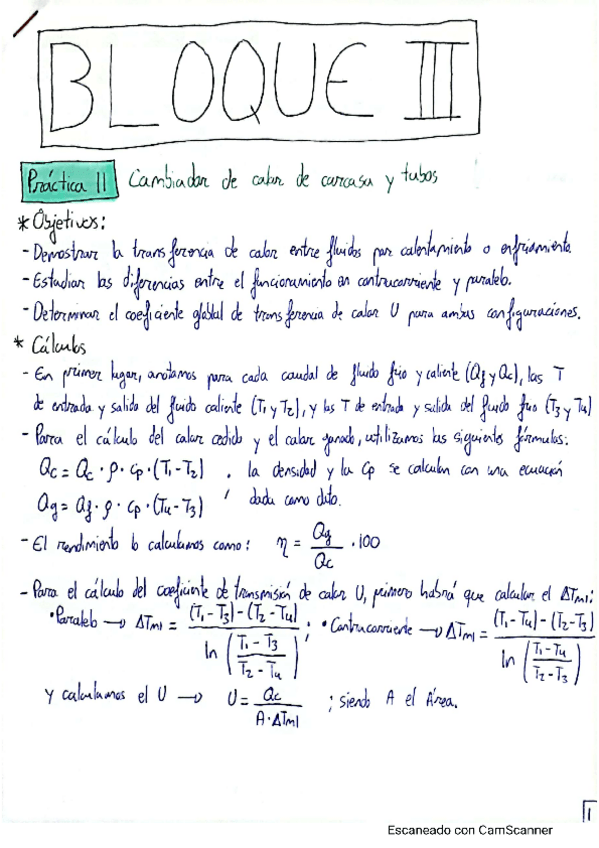 BLOQUE III
Práctica 11 Cambiador de calor de carcasa y tubos
* Objetivos:
- Demostrar la transferencia de calor entre fluidos por calentamiento o enfriamiento.
- Estudiar las diferencias entre el funcionamiento en contracorriente y paralelo.
- Determinar el coeficiente global de transferencia de calor U para ambas configuraciones.
* Cálculos
- En primer lugar, anotamos para cada caudal de fluido frío y caliente (Qf y Qc), las T
de entrada y salida del fluido caliente (T1 y T2), y las T de entrada y salida del fluido frío (T3 y T4)
- Para el cálculo del calor cedido y el calor ganado, utilizamos las siguientes fórmulas:
Qc = Qc · ρ · cp · (T1 - T2) , la densidad y la cp se calculan con una ecuación
Qg = Qf · ρ · cp · (T4 - T3) dada como dato.
- El rendimiento lo calculamos como: η = Qg / Qc · 100
- Para el cálculo del coeficiente de transmisión de calor U, primero habrá que calcular el ΔTml:
• Paralelo → ΔTml = (T1 - T3) - (T2 - T4) / ln (T1 - T3 / T2 - T4) ; • Contracorriente → ΔTml = (T1 - T4) - (T2 - T3) / ln (T1 - T4 / T2 - T3)
y calculamos el U → U = Qc / A · ΔTml ; siendo A el Área.
1
Escaneado con CamScanner